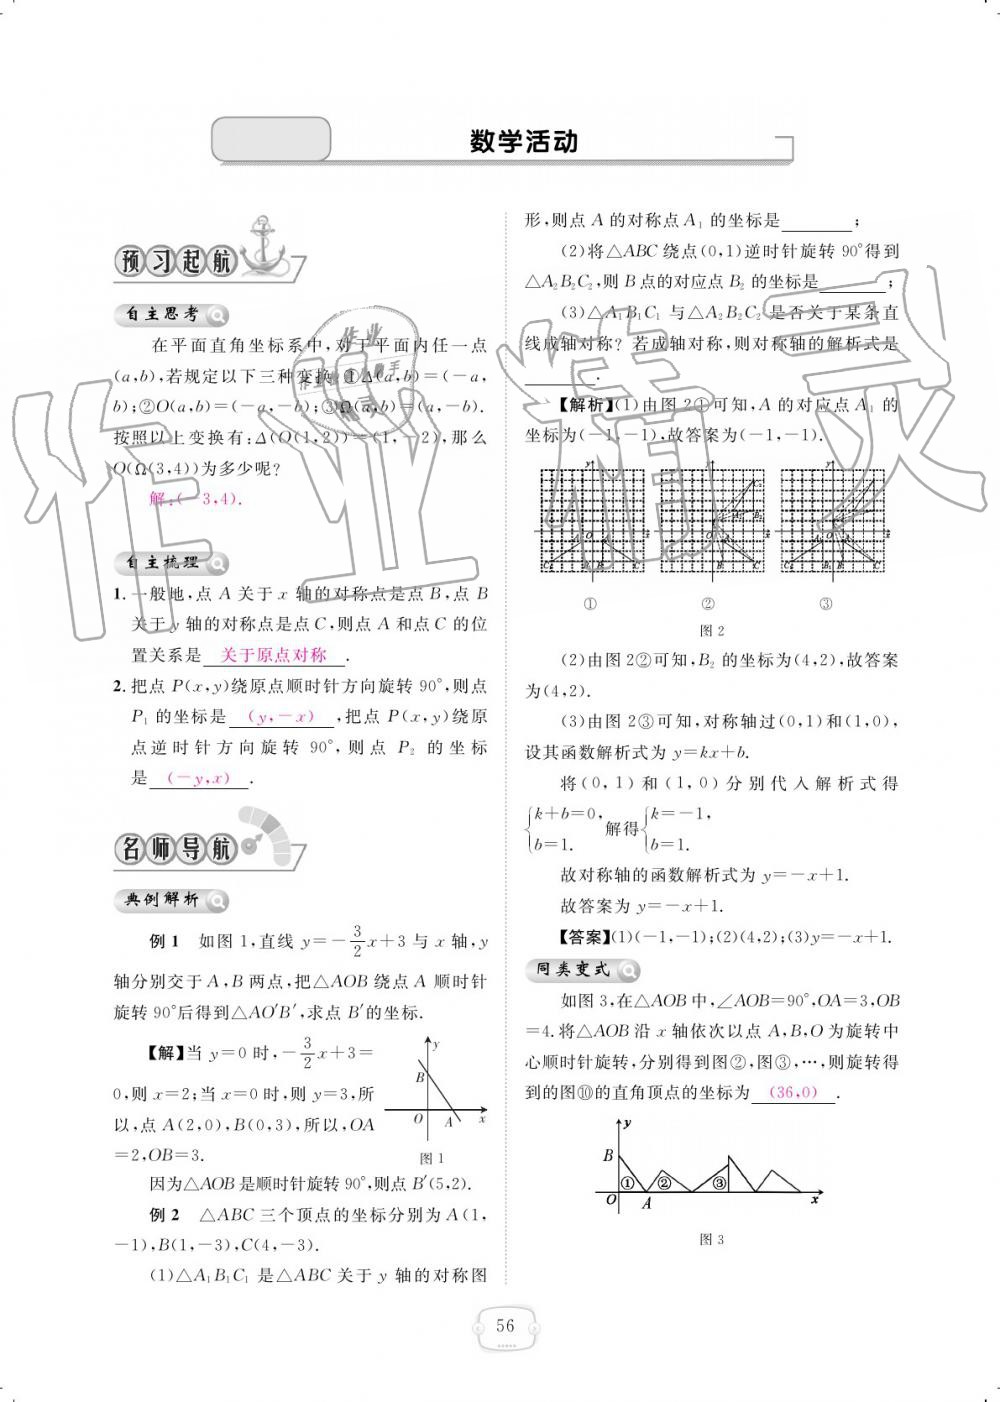 数学活动
预习起航
自主思考
在平面直角坐标系中,对于平面内任一点
(a,b),若规定以下三种变换:①Δ(a,b)=(-a,
b);②O(a,b)=(-a,-b);③Ω(a,b)=(a,-b).
按照以上变换有:Δ(O(1,2))=(1,-2),那么
O(Ω(3,4))为多少呢?
解:(-3,4).
自主梳理
1. 一般地,点 A 关于 x 轴的对称点是点 B,点 B
关于 y 轴的对称点是点 C,则点 A 和点 C 的位
置关系是 关于原点对称 .
2. 把点 P(x,y)绕原点顺时针方向旋转 90°,则点
P₁ 的坐标是 (y,-x) ,把点 P(x,y)绕原
点逆时针方向旋转 90°,则点 P₂ 的坐标
是 (-y,x) .
名师导航
典例解析
例 1 如图 1,直线 y=-3/2x+3 与 x 轴,y
轴分别交于 A,B 两点,把△AOB 绕点 A 顺时针
旋转 90°后得到△AO′B′,求点 B′的坐标.
【解】当 y=0 时,-3/2x+3=
0,则 x=2;当 x=0 时,则 y=3,所
以,点 A(2,0),B(0,3),所以,OA
=2,OB=3.
y
B
O A x
图 1
因为△AOB 是顺时针旋转 90°,则点 B′(5,2).
例 2 △ABC 三个顶点的坐标分别为 A(1,
-1),B(1,-3),C(4,-3).
(1)△A₁B₁C₁ 是△ABC 关于 y 轴的对称图
形,则点 A 的对称点 A₁ 的坐标是 ;
(2)将△ABC 绕点(0,1)逆时针旋转 90°得到
△A₂B₂C₂,则 B 点的对应点 B₂ 的坐标是 ;
(3)△A₁B₁C₁ 与△A₂B₂C₂ 是否关于某条直
线成轴对称?若成轴对称,则对称轴的解析式是
.
【解析】(1)由图 2①可知,A 的对应点 A₁ 的
坐标为(-1,-1),故答案为(-1,-1).
① ② ③
图 2
(2)由图 2②可知,B₂ 的坐标为(4,2),故答案
为(4,2).
(3)由图 2③可知,对称轴过(0,1)和(1,0),
设其函数解析式为 y=kx+b.
将(0,1)和(1,0)分别代入解析式得
{k+b=0, b=1. 解得{k=-1, b=1.
故对称轴的函数解析式为 y=-x+1.
故答案为 y=-x+1.
【答案】(1)(-1,-1);(2)(4,2);(3)y=-x+1.
同类变式
如图 3,在△AOB 中,∠AOB=90°,OA=3,OB
=4.将△AOB 沿 x 轴依次以点 A,B,O 为旋转中
心顺时针旋转,分别得到图②,图③,…,则旋转得
到的图⑩的直角顶点的坐标为 (36,0) .
y
B
① ② ③
O A x
图 3
56
作业精灵